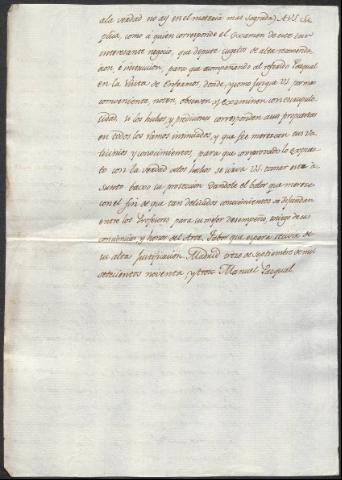 ala verdad no ay en el materia mas sagrada) A VS. Su-
plica, como á quien corresponde el examen de este tan
interesante negocio, que depute sugetos de alta
è instruccion, para que acompañando al referido Pasqual
en la Visita de Enfermos, donde, y como juzgue VS. por mas
conveniente, noten, observen, y examinen con escrupulo-
sidad, si los hechos, y predicciones corresponden a sus propuestas
en todos los ramos insinuados, y que fee merezcan sus va-
ticinios y conocimientos, para que comprovado lo expues-
to con la verdad delos hechos se sirva VS. tomar este a-
sunto baxo su proteccion dandole el balor que merece
con el fin de que tan delicados conocimientos se difundan
entre los Profesores para su mejor desempeño, sosiego de sus
conciencias, y honor del Arte. Fabor que espera
su alta justificacion. Madrid y trece de septiembre de mil
setecientos noventa, y tres. Manuel Pasqual